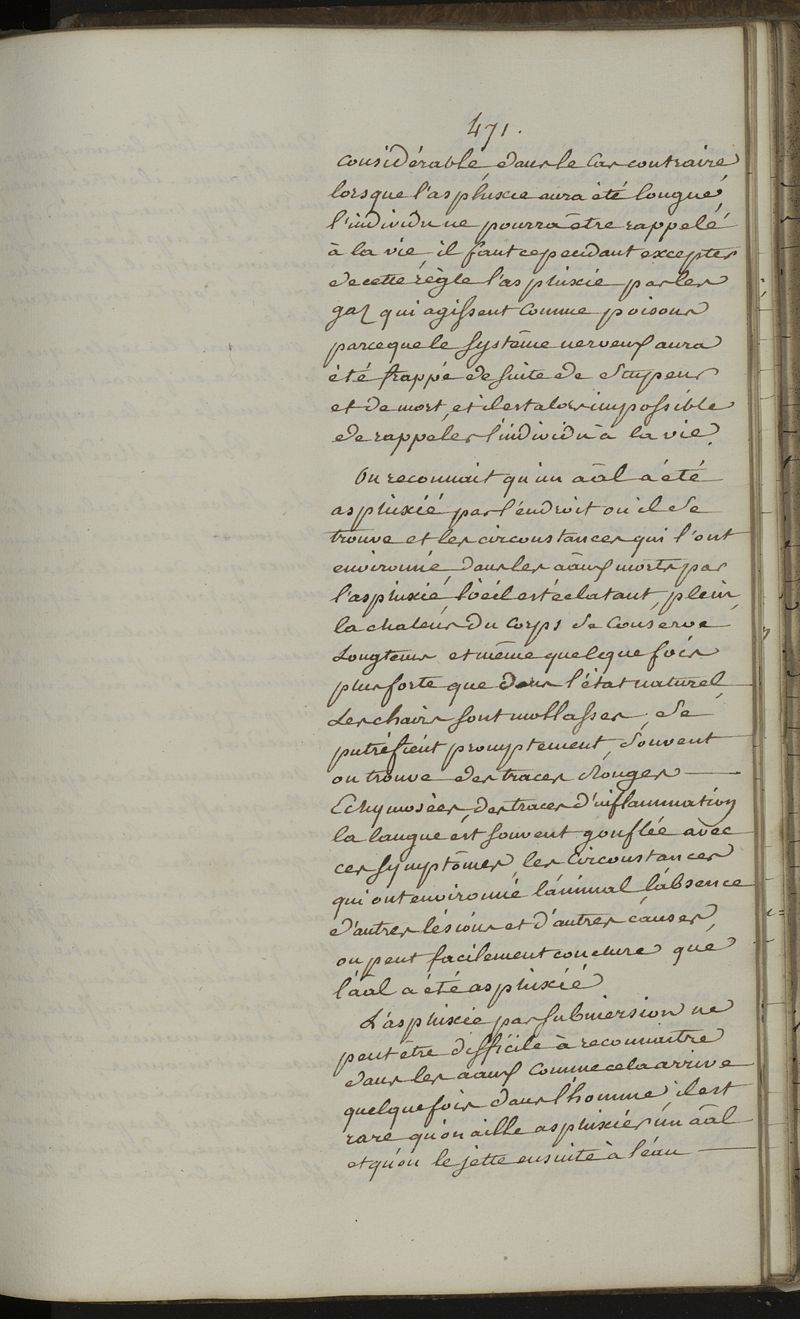 471.
considérable, dans le Cas contraire
lorsque l'asphixie aura été longue,
l'individu ne pourra être rappelé
à la vie, il faut cependant excepter
de cette règle l'asphixie par les
gaz qui agissent comme poisons
parceque le système nerveux aura
été frappé de suite de stupeur
et de mort, et il est alors impossible
de rappeler l'individu à la vie.
On reconnait qu'un aâl a été
asphixié par l'endroit ou il se
trouve et les circonstances qui l'ont
environné, dans les aâux morts par
l'asphixie l'oeil est éclatant, plein,
la chaleur du Corps se conserve
Longtems et même quelque fois
plus forte que dans l'état naturel
Les chairs sont mollasses, se
putréfient promptement, souvent
on trouve des traces Rouges
Echymosées, des traces d'inflammation
la langue est souvent gonflée avec
ces symptômes, les Circonstances
qui ont environné l'animal l'absence
d'autres lésions et d'autres causes,
on peut facilement conclure que
l'aâl a été asphixié
L'asphixie par submersion ne
peut être difficile à reconnaitre
dans les aâux comme cela arrive
quelque fois dans l'homme, il est
rare qu'on aille asphixier un aâl
et qu'on le jette ensuite à l'eau